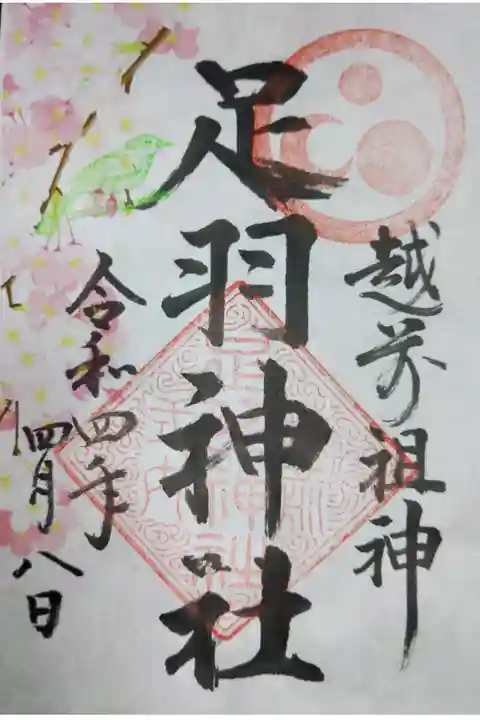 越前祖神
足羽神社
令和四年
四月八日